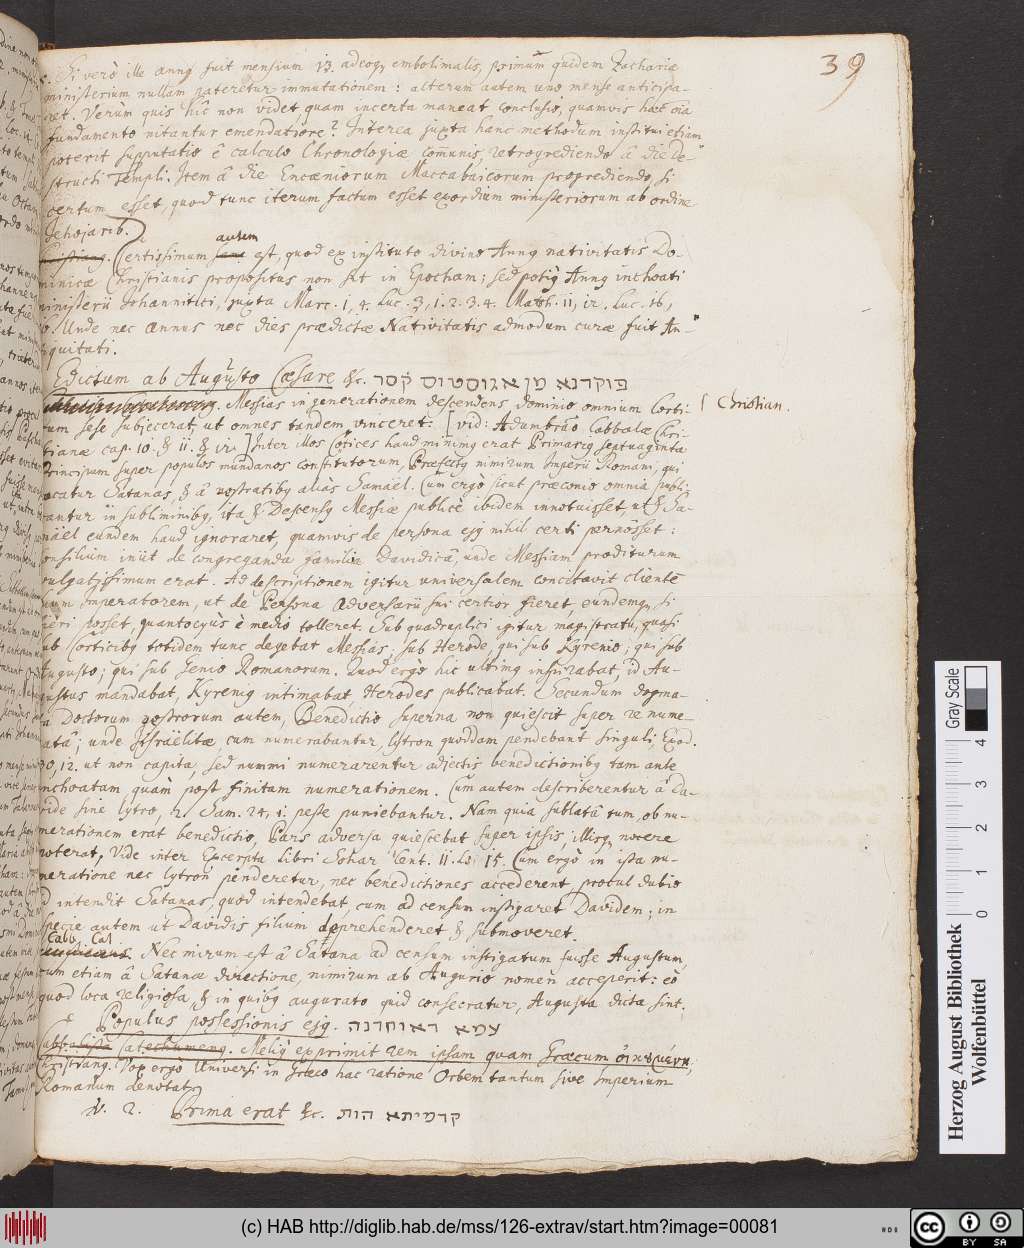 39
Si verò ille annus fuit mensium 13. adeoq; embolimalis, primum quidem Zachariæ
ministerium nullam pateretur immutationem: alterum autem uno mense anticipa-
ret. Verùm quis hîc non videt, quam incerta maneat conclusio, quamvis hæc oīa
fundamento nitantur emendatiore? Interea juxta hanc methodum institui etiam
poterit supputatio è calculo Chronologiæ com̄unis, retrogrediendo â die De-
structi Templi. Item â die Encæniorum Maccabaicorum progrediendo, si
certum esset, quod tunc iterum factum esset exordium ministeriorum ab ordine
Jehojarib.
autem
Certissimum est, quod ex instituto divino Annus nativitatis Do-
minicæ Christianis propositus non sit in Epocham; sed potius Annus inchoati
ministerii Johannitici, juxta Marc. 1, 4. Luc. 3, 1. 2. 3. 4. Matth. 11, 12. Luc. 16,
Unde nec annus nec dies prædictæ Nativitatis admodum curæ fuit An-
tiquitati.
Edictum ab Augusto Cæsare &c. פוקדנא מן אגוסטוס קסר
Messias in generationem descendens dominio omnium Corti-
Christian.
cum sese subjecerat, ut omnes tandem vinceret: [vid: Adumbrāo Cabbalæ Chri-
tianæ cap. 10. & 11. & 12.] Inter illos Cortices haud minimus erat Primarius septuaginta
Principum super populos mundanos constitutorum, Præfectus nimirum Imperii Romani, qui
vocatur Satanas, & â nostratibus aliàs Samäel. Cum ergò sicut præconio omnia publi-
cantur in sublimibus, ita & Descensus Messiæ publicè ibidem innotuisset, ut & Sa-
mäel eundem haud ignoraret, quamvis de persona ejus nihil certi pernôsset:
Consilium iniit de congreganda familia Davidicâ, unde Messiam proditurum
vulgatissimum erat. Ad descriptionem igitur universalem concitavit clientē
suum Imperatorem, ut de Persona Adversarii sui certior fieret, eundemq; si
fieri posset, quantocyùs è medio tolleret. Sub quadruplici igitur magistratu, quasi
sub Corticibus totidem tunc degebat Messias: sub Herode, qui sub Kyrenio; qui sub
Augusto; qui sub Genio Romanorum. Quod ergò hic ultimus inspirabat, id Au-
gustus mandabat, Kyrenius intimabat, Herodes publicabat. Secundum dogma-
ta Doctorum nostrorum autem, Benedictio superna non quiescit super re nume-
ratâ; unde Jisraëlitæ cum numerabantur, lytron quoddam pendebant singuli, Exod.
30, 12. ut non capita, sed nummi numerarentur adjectis benedictionibus tam ante
inchoatam quàm post finitam numerationem. Cum autem describerentur â Da-
vide sine lytro, 2. Sam. 24, 1. peste puniebantur. Nam quia sublatâ tum ob nu-
merationem erat benedictio, Pars adversa quiescebat super ipsis, illisq; nocere
poterat, Vide inter Excerpta Libri Sohar Cent. 11. Lo. 15. Cum ergò in ista nu-
meratione nec lytron penderetur, nec benedictiones accederent, procul dubio
id intendit Satanas, quod intendebat, cum ad censum instigaret Davidem; in
specie autem ut Davidis filium deprehenderet & submoveret.
Cabb. Cat.
Nec mirum est â Satana ad censum instigatum fuisse Augustum
cum etiam â Satanæ directione, nimirum ab Augurio nomen acceperit: eò
quod loca religiosa, & in quibus augurato quid consecratur, Augusta dicta sint.
Populus possessionis ejus. עמא דאוחדנה
Cabbalista Catechumenus. Meliùs exprimit rem ipsam quam Græcum οἰκȣμένη,
Christianus. Vox ergò Universi in Græco hac ratione Orbem tantum sive Imperium
Romanum denotat,
v. 2. Prima erat &c. קדמיתא הות
Herzog August Bibliothek
Wolfenbüttel
Gray Scale
0 1 2 3 4
(c) HAB http://diglib.hab.de/mss/126-extrav/start.htm?image=00081
cc BY SA